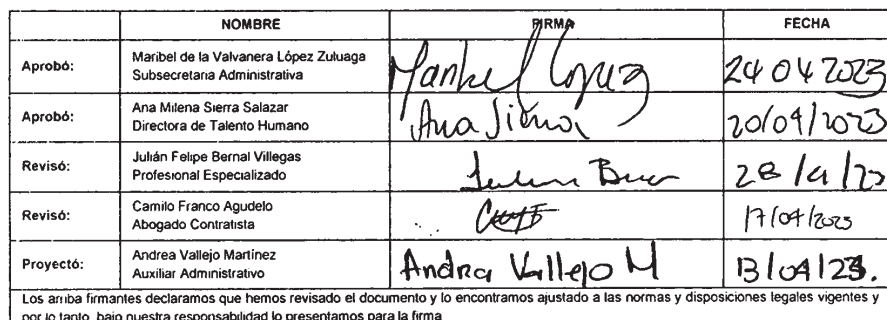 NOMBRE FIRMA FECHA
Aprobó: Maribel de la Valvanera López Zuluaga
Subsecretaria Administrativa
Maribel López 24 04 2023
Aprobó: Ana Milena Sierra Salazar
Directora de Talento Humano
Ana Sierra 20/04/2023
Revisó: Julián Felipe Bernal Villegas
Profesional Especializado
Revisó: Camilo Franco Agudelo
Abogado Contratista
17/04/2023
Proyectó: Andrea Vallejo Martínez
Auxiliar Administrativo
Andrea Vallejo M 13/04/23.
Los arriba firmantes declaramos que hemos revisado el documento y lo encontramos ajustado a las normas y disposiciones legales vigentes y
por lo tanto, bajo nuestra responsabilidad lo presentamos para la firma